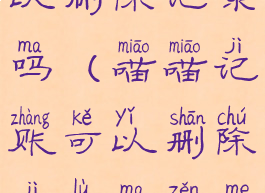 以删除记录
ma miāo miāo jì
吗（喵喵记
zhàng kě yǐ shān chú
账可以删除
jì lù ma zěn me